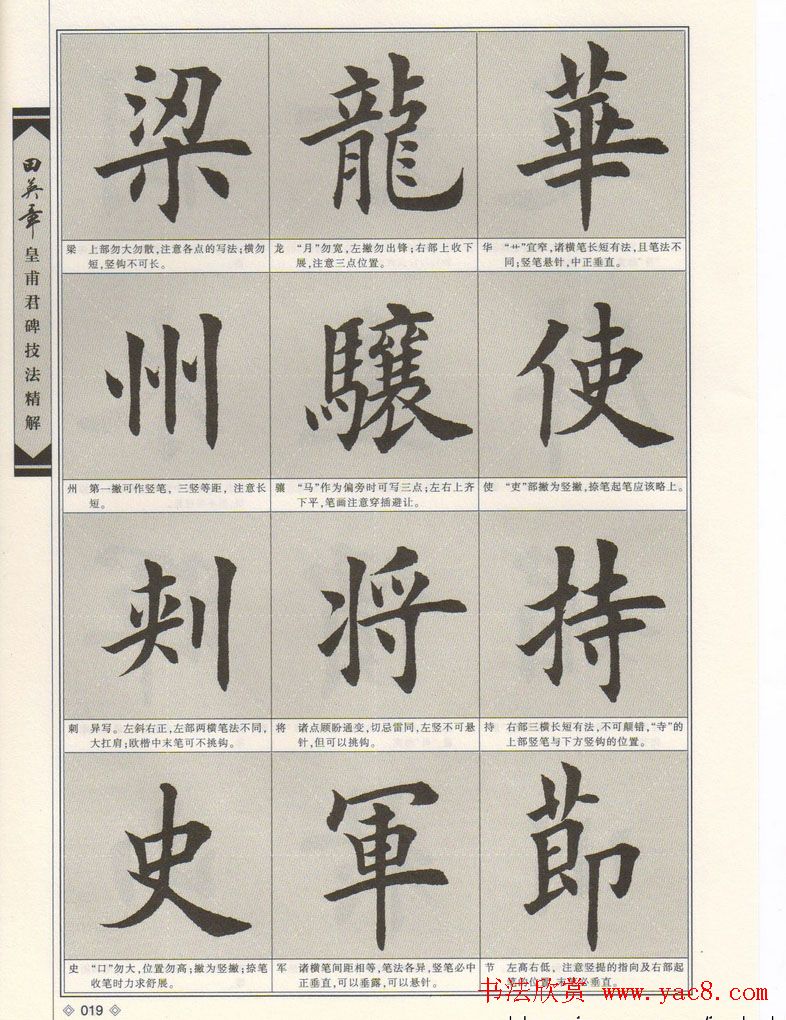 田英章
皇甫君碑技法精解
梁
龍
華
梁 上部勿大勿散，注意各点的写法；横勿
短，竖钩不可长。
龙 “月”勿宽，左撇勿出锋；右部上收下
展，注意三点位置。
华 “艹”宜窄，诸横笔长短有法，且笔法不
同；竖笔悬针，中正垂直。
州
驤
使
州 第一撇可作竖笔，三竖等距，注意长
短。
骧 “马”作为偏旁时可写三点；左右上齐
下平，笔画注意穿插避让。
使 “吏”部撇为竖撇，捺笔起笔应该略上。
刾
将
持
刺 异写。左斜右正，左部两横笔法不同，
大扛肩；欧楷中末笔可不挑钩。
将 诸点顾盼通变，切忌雷同，左竖不可悬
针，但可以挑钩。
持 右部三横长短有法，不可颠错，“寺”的
上部竖笔与下方竖钩的位置。
史
軍
節
史 “口”勿大，位置勿高；撇为竖撇；捺笔
收笔时力求舒展。
军 诸横笔间距相等，笔法各异，竖笔必中
正垂直，可以垂露，可以悬针。
节 左高右低，注意竖提的指向及右部起
必垂直。
书法欣赏 www.yac8.com
019